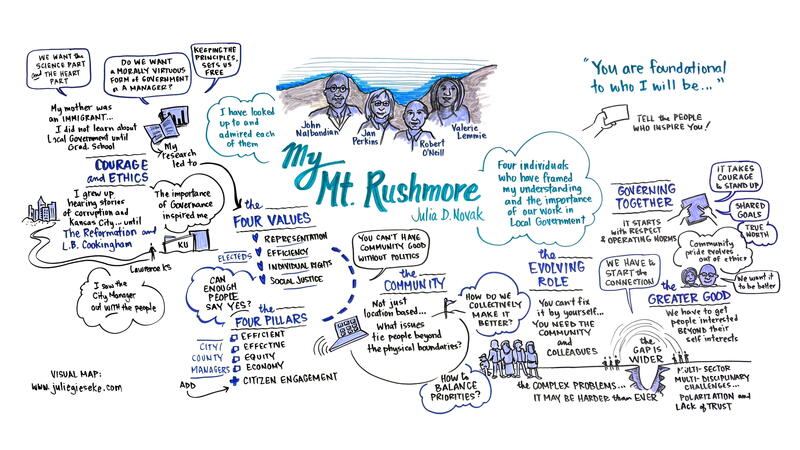 WE WANT the
SCIENCE PART
and THE HEART
PART
DO WE WANT
a MORALLY VIRTUOUS
FORM of GOVERNMENT
or A MANAGER?
KEEPING THE
PRINCIPLES,
SETS US
FREE
My mother was
an IMMIGRANT...
I did not learn about
Local Government until
Grad. School
My
research
led to
COURAGE
and ETHICS
I grew up
hearing stories
of corruption and
Kansas City... until
The Reformation and
L.B. Cookingham
The importance
of Governance
inspired me
KU
Lawrence KS
I saw the
City Manager
out with the people
VISUAL MAP:
www.juliegieseke.com
I have looked
up to and
admired each
of them
John
Nalbandian
Jan
Perkins
Robert
O'Neill
Valerie
Lemmie
My
Mt. Rushmore
Julia D. Novak
the
FOUR VALUES
REPRESENTATION
EFFICIENCY
INDIVIDUAL RIGHTS
SOCIAL JUSTICE
ELECTEDS
CAN
ENOUGH
PEOPLE
SAY YES?
the
FOUR PILLARS
EFFICIENT
EFFECTIVE
EQUITY
ECONOMY
CITY/
COUNTY
MANAGERS
ADD
+ CITIZEN ENGAGEMENT
YOU CAN'T HAVE
COMMUNITY GOOD
WITHOUT POLITICS
the
COMMUNITY
Not just
location based...
What issues
tie people beyond
the physical boundaries?
HOW DO WE
COLLECTIVELY
MAKE IT
BETTER?
HOW to
BALANCE
PRIORITIES?
Four individuals
who have framed
my understanding
and the importance
of our Work in
Local Government
the
EVOLVING
ROLE
You can't fix
it by yourself...
YOU NEED THE
COMMUNITY
and
COLLEAGUES
the COMPLEX PROBLEMS...
IT MAY BE HARDER than EVER
"You are foundational
to who I will be..."
TELL the PEOPLE
WHO INSPIRE YOU!
GOVERNING
TOGETHER
IT STARTS
with RESPECT
& OPERATING NORMS
IT TAKES
COURAGE to
STAND UP
SHARED
GOALS
TRUE
NORTH
Community
pride evolves
out of ethics
We want it
to be better
WE HAVE to
START the
CONNECTION
the
GREATER GOOD
We have to get
people interested
BEYOND their
self interests
the
GAP IS
WIDER
MULTI-SECTOR
MULTI-DISCIPLINARY
CHALLENGES...
POLARIZATION and
LACK of TRUST